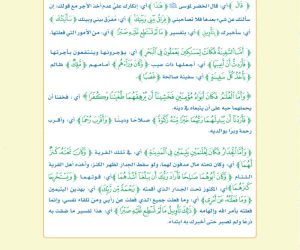 ﴿ قال ﴾ أي، قال الخضر لموسى ﷺ ﴿ هذا ﴾ أي، إنكارك علي عدم أخذ الأجر مع قولك، إن
سألتك عن شيء بعدها فلا تصاحبني ﴿ فراق بيني وبينك ﴾ أي، مفرق بيني وبينك ﴿ سأنبئك ﴾
أي، سأخبرك ﴿ بتأويل ﴾ أي، بتفسير ﴿ ما لم تستطع عليه صبرا ﴾ أي، من الأمور التي فعلتها.
﴿ أما السفينة فكانت لمساكين يعملون في البحر ﴾ أي، يؤجرونها وينتفعون بأجرتها
﴿ فأردت أن أعيبها ﴾ أي، أجعلها ذات عيب ﴿ وكان وراءهم ﴾ أي، أمامهم ﴿ ملك ﴾ ظالم
﴿ يأخذ كل سفينة ﴾ أي، سفينة صالحة ﴿ غصبا ﴾
﴿ وأما الغلام فكان أبواه مؤمنين فخشينا أن يرهقهما طغيانا وكفرا ﴾ أي، فخفنا أن
يحملهما حبه على أن يتبعاه في دينه
﴿ فأردنا أن يبدلهما ربهما خيرا منه زكاة ﴾ صلاحا ودينا ﴿ وأقرب رحما ﴾ أي، وأقرب
رحمة وبرا بوالديه
﴿ وأما الجدار فكان لغلامين يتيمين في المدينة ﴾ أي، في تلك القرية ﴿ وكان تحته كنز
لهما ﴾ أي، وكان تحته مال مدفون لهما، ولو سقط الجدار لظهر الكنز، وأخذه أهل القرية
اللئام ﴿ وكان أبوهما صالحا فأراد ربك أن يبلغا أشدهما ﴾ أي، قوتهما ﴿ ويستخرجا
كنزهما ﴾ أي، الكنوز تحت الجدار الذي أقمته ﴿ رحمة من ربك ﴾ أي، بهذين اليتيمين
﴿ وما فعلته عن أمري ﴾ أي، وما فعلت جميع الذي فعلت عن رأيي ومن تلقاء نفسي، وإنما
فعلته بأمر الله وإلهامه ﴿ ذلك تأويل ما لم تسطع عليه صبرا ﴾ أي، هذا تفسير ما ضقت به
ذرعا ولم تصبر حتى أخبرك به ابتداء.